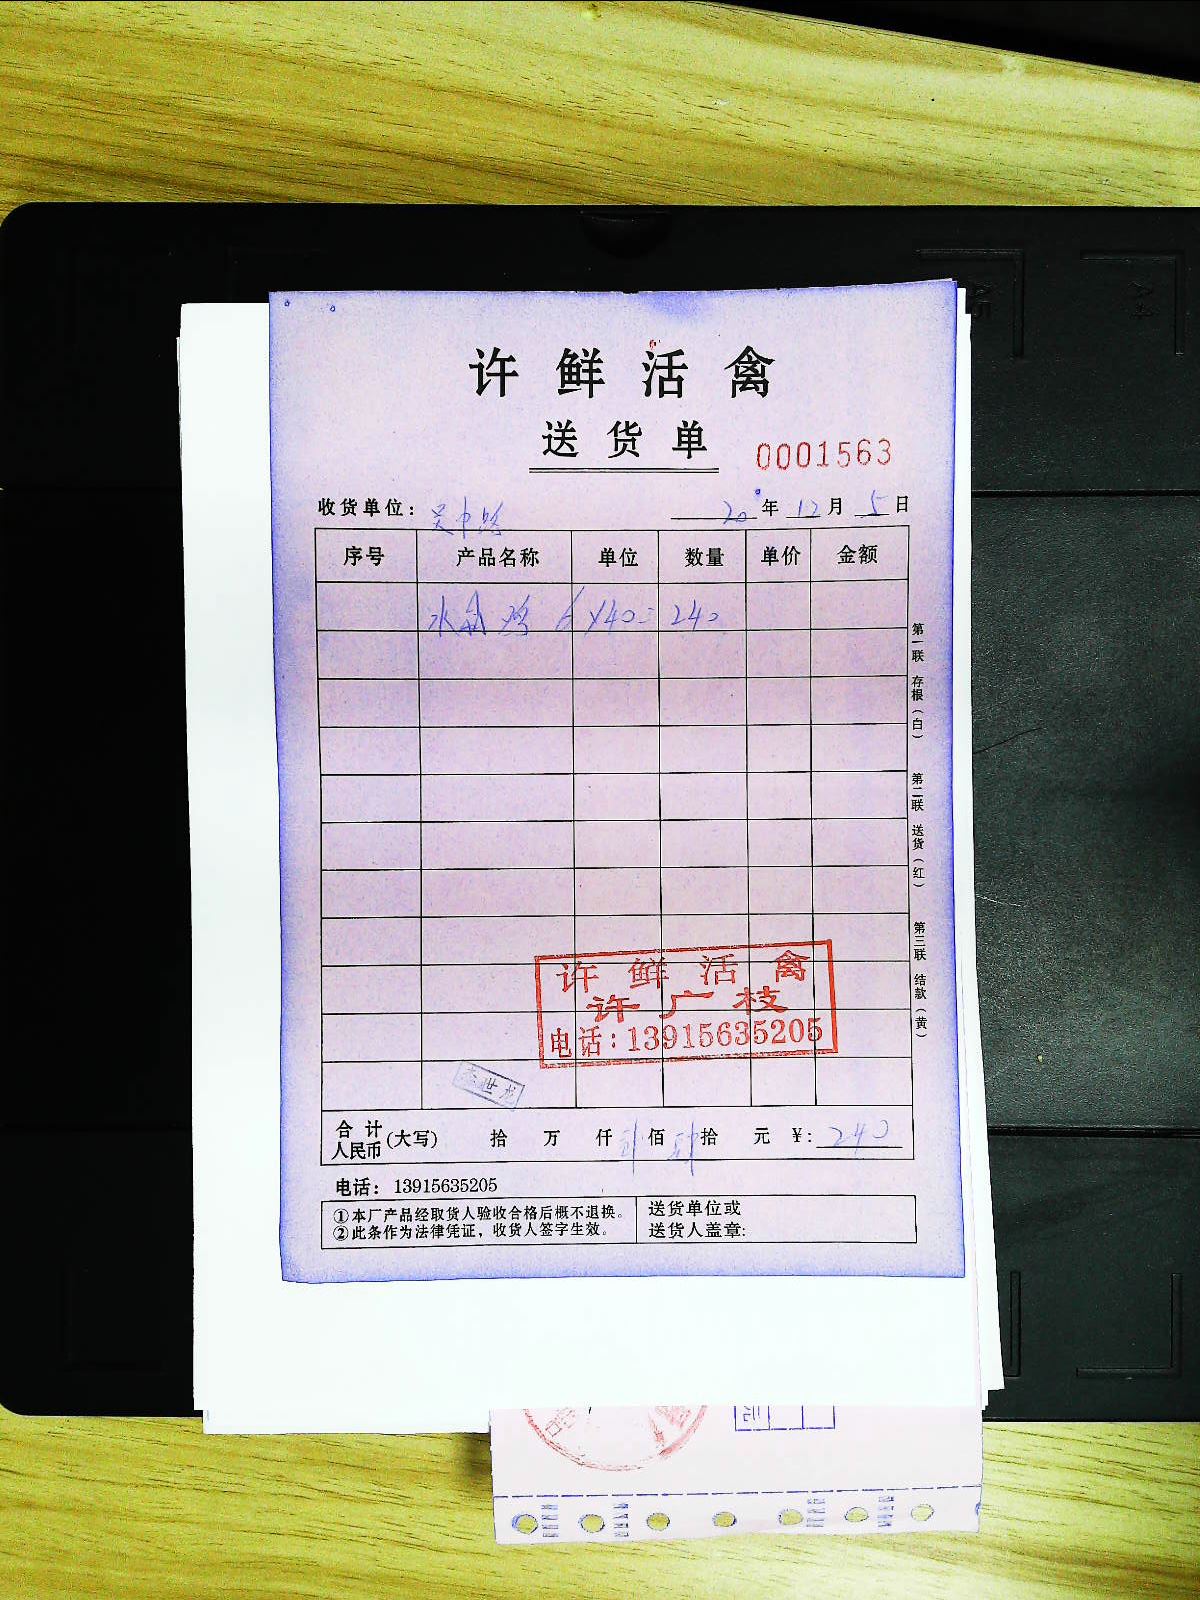 许鲜活禽
送货单
0001563
收货单位：吴中路 20年12月5日
序号 产品名称 单位 数量 单价 金额
水 鸡 6×40=240
第一联 存根（白） 第二联 送货（红） 第三联 结款（黄）
许鲜活禽
许广枝
电话：13915635205
李世龙
合计人民币(大写) 拾 万 仟 贰佰 肆拾 元 ¥：240
电话：13915635205
①本厂产品经取货人验收合格后概不退换。
②此条作为法律凭证，收货人签字生效。
送货单位或
送货人盖章: